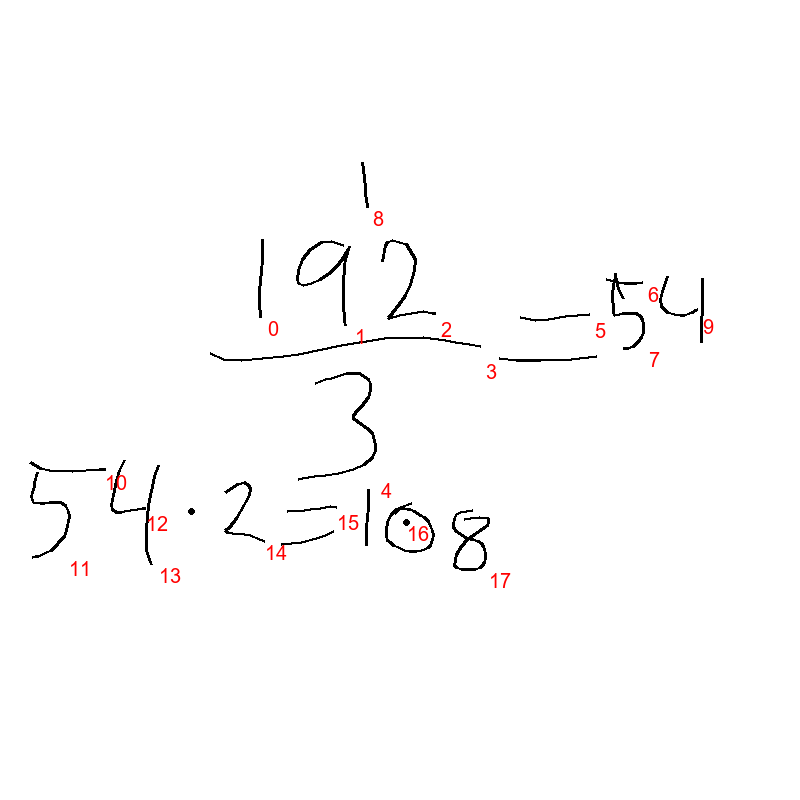 1
192
— = 54
3
54 · 2 = 108
0
1
2
3
4
5
6
7
8
9
10
11
12
13
14
15
16
17